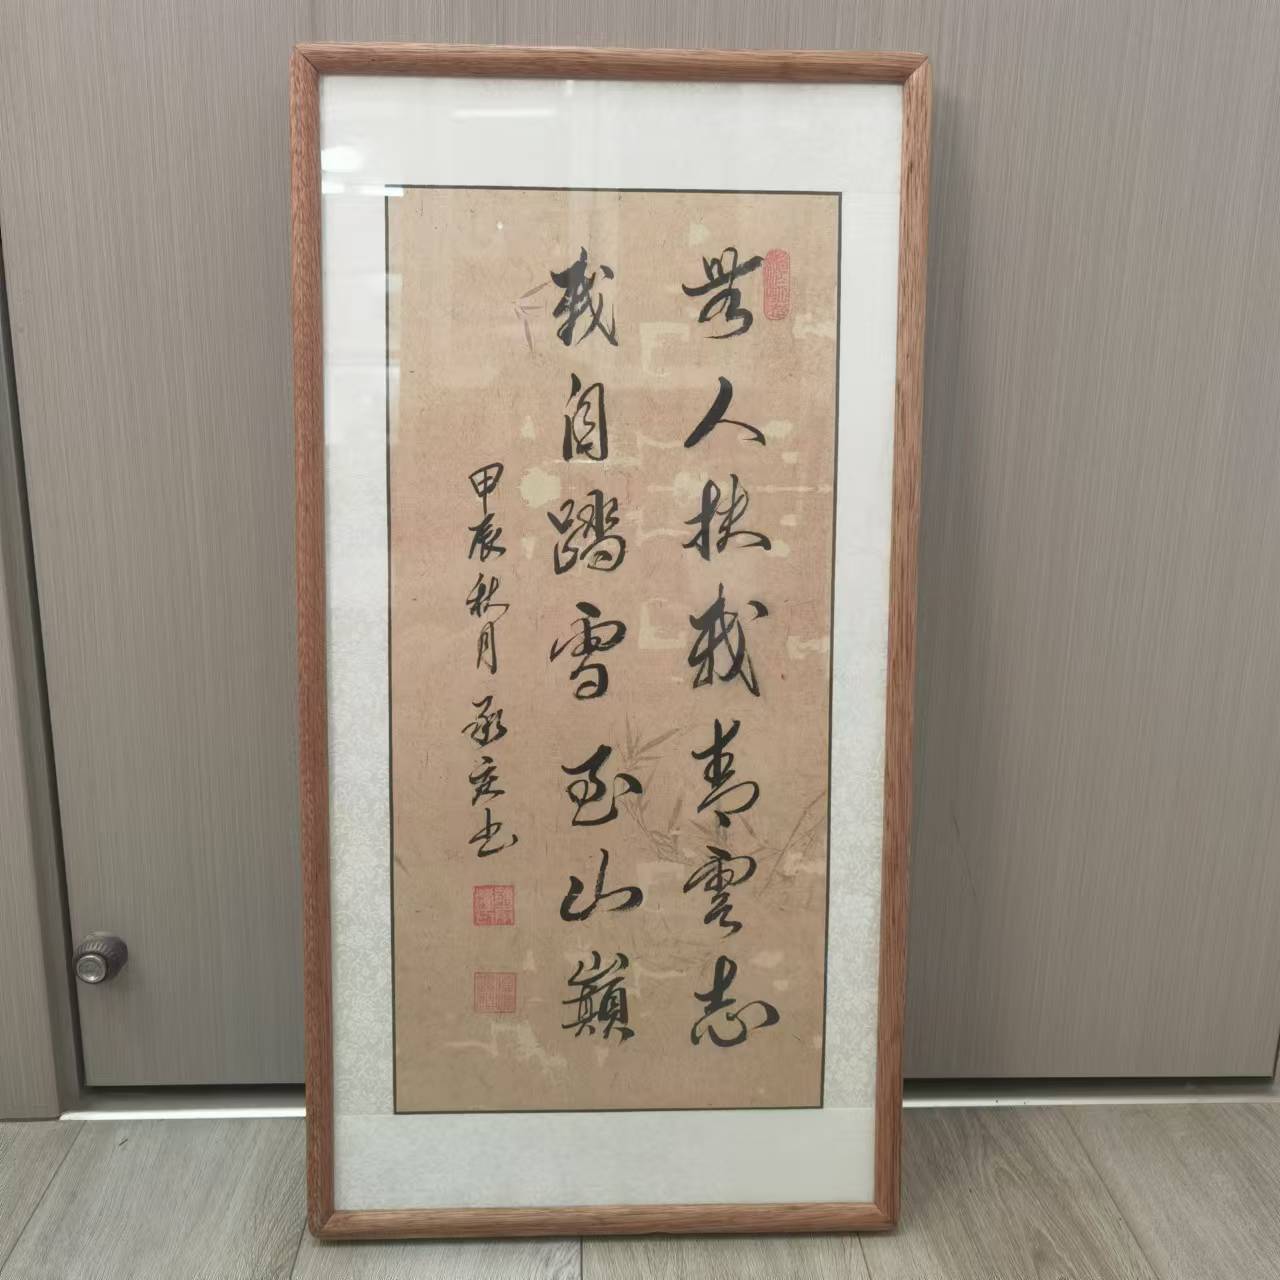 無人扶我青雲志
我自踏雪至山巔
甲辰秋月承宏书